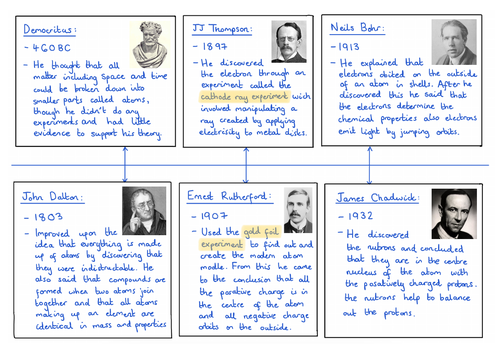 Democritus:
- 460BC
- He thought that all
matter including space and time
could be broken down into
smaller parts called atoms,
though he didn't do any
experiments and had little
evidence to support his theory.
JJ Thompson:
- 1897
- He discovered
the electron through an
experiment called the
cathode ray experiment wich
involved manipulating a
ray created by applying
electrisity to metal disks.
Neils Bohr:
- 1913
- He explained that
electrons obited on the outside
of an atom in shells. After he
discovered this he said that
the electrons determine the
chemical properties also electrons
emit light by jumping orbits.
John Dalton:
- 1803
- Improved upon the
idea that everything is made
up of atoms by discovering that
they were indistructable. He
also said that compounds are
formed when two atoms join
together and that all atoms
making up an element are
identical in mass and properties
Ernest Rutherford:
- 1907
- Used the gold foil
experiment to find out and
create the modern atom
modle. From this he came
to the conclusion that all
the positive charge is in
the centre of the atom
and all negative charge
orbits on the outside.
James Chadwick:
- 1932
- He discovered
the nutrons and concluded
that they are in the centre
nucleus of the atom with
the posatively charged protons.
the nutrons help to balance
out the protons.